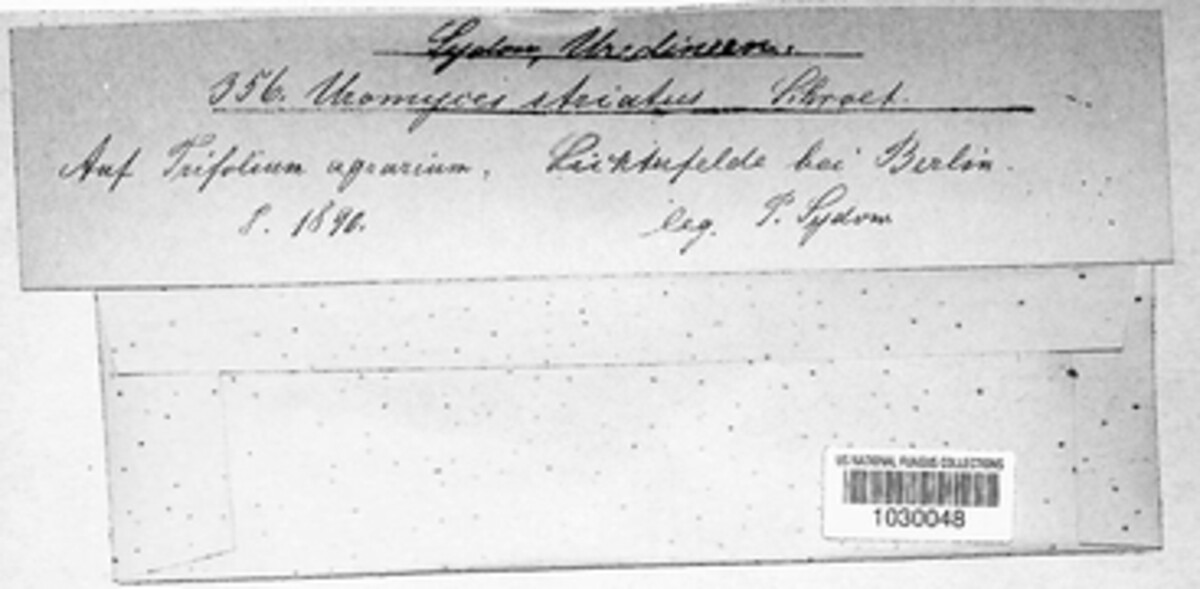 Sydow, Uredineen.
356. Uromyces striatus Schroet.
Auf Trifolium agrarium. Lichterfelde bei Berlin.
8. 1890. leg. P. Sydow
US NATIONAL FUNGUS COLLECTIONS
1030048